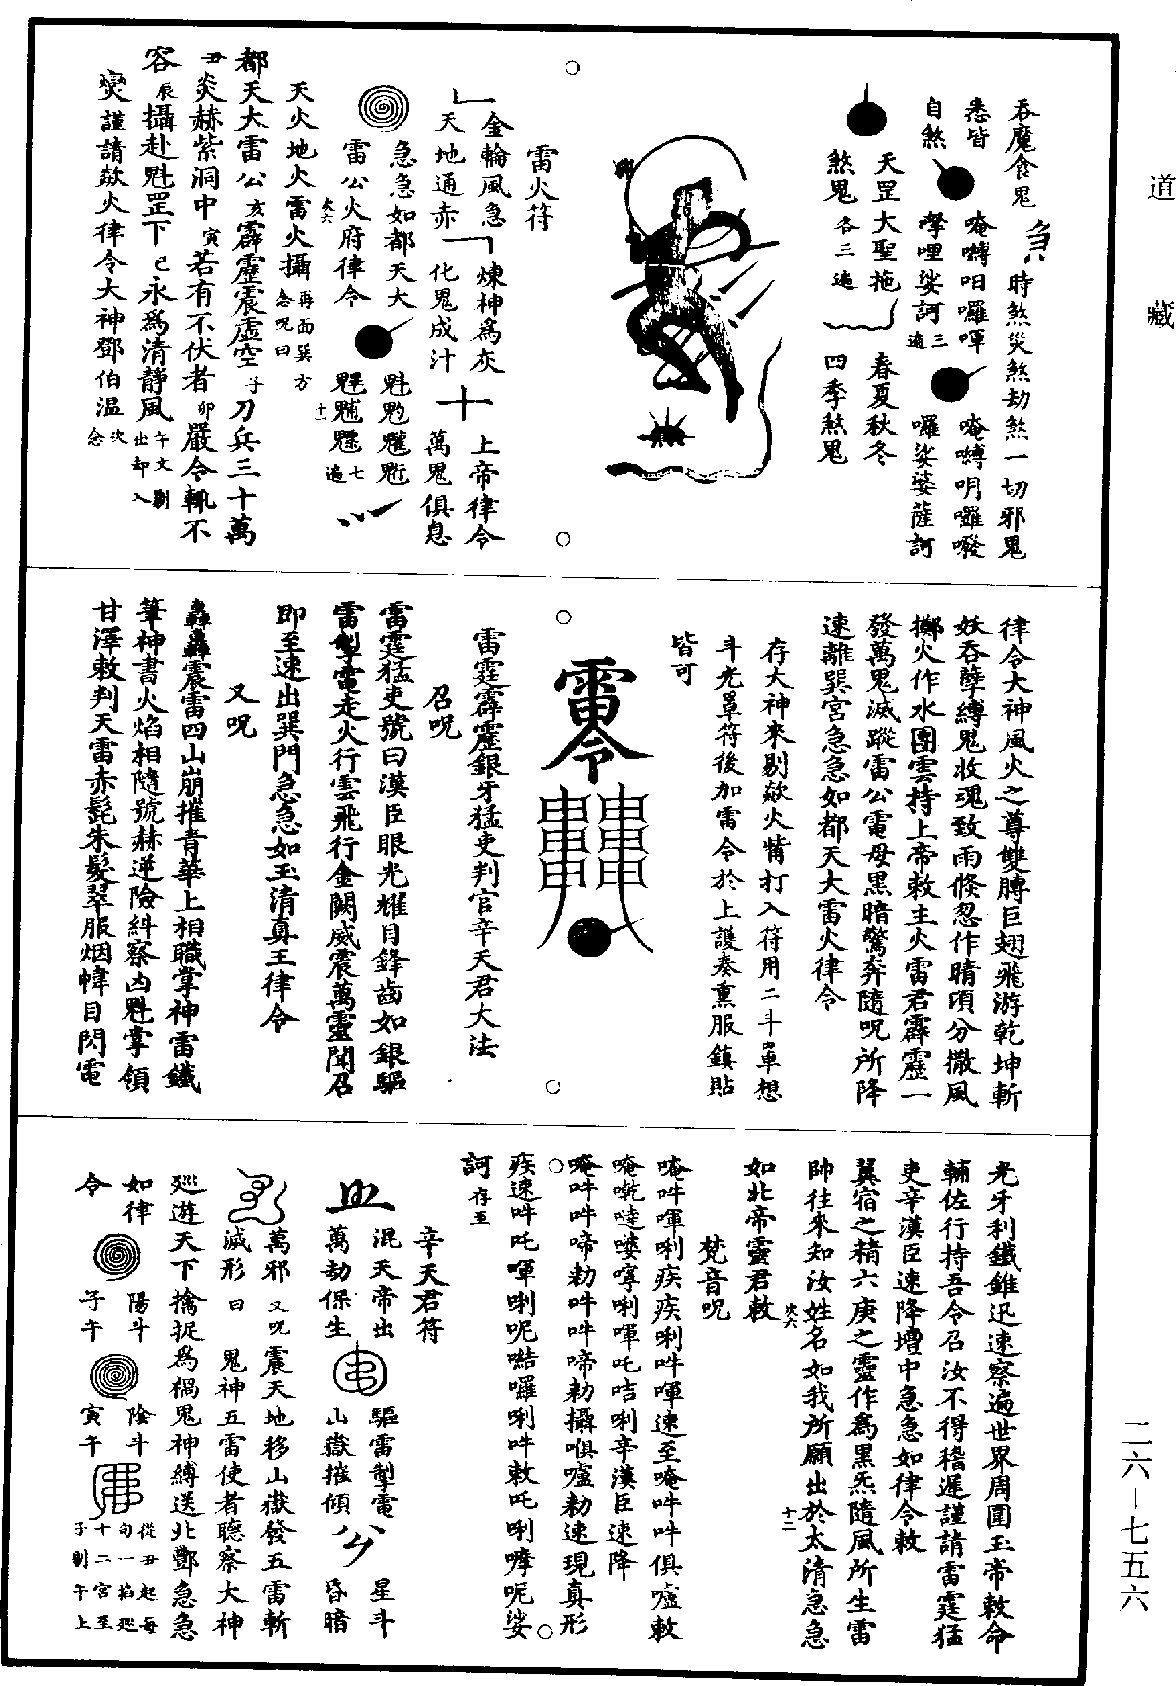 道藏
吞魔食鬼
時煞災煞劫煞一切邪鬼
悉皆
唵囀咟囉㖃
唵囀呪囉囉
自煞
㖃哩娑訶三遍
囉娑婆薩訶
天罡大聖拖
春夏秋冬
煞鬼各三遍
四季煞鬼
雷火符
金輪風急
煉神為灰
上帝律令
天地通赤
化鬼成汁
萬鬼俱息
急急如都天大
雷公火府律令
七遍
天火地火雷火攝再面巽方念呪曰
都天大雷公亥霹靂震虛空子刀兵三十萬
丑炎赫紫洞中寅若有不伏者卯嚴令輒不
容辰攝赴魁罡下巳永為清靜風午文剔出却入
㸌謹請欻火律令大神鄧伯温次念
律令大神風火之尊雙膊巨翅飛游乾坤斬
妖吞孽縛鬼收魂致雨倏忽作晴頃分撒風
擲火作水團雲持上帝敕主火雷君霹靂一
發萬鬼滅蹤雷公電母黑暗驚奔隨呪所降
速離巽宮急急如都天大雷火律令
存大神來剔欻火觜打入符用二斗罩想
斗光罩符後加雷令於上謢奏熏服鎮貼
皆可
雷令
雷霆霹靂銀牙猛吏判官辛天君大法
召呪
雷霆猛吏號曰漢臣眼光耀目鋒齒如銀驅
雷掣電走火行雲飛行金闕威震萬靈聞召
即至速出巽門急急如玉清真王律令
又呪
轟轟震雷四山崩摧青華上相職掌神雷鐵
筆神書火焰相隨號赫逆險糾察凶魁掌領
甘澤敕判天雷赤髭朱髮翠服烟幃目閃電
光牙利鐵錐迅速察遍世界周圓玉帝敕命
輔佐行持吾令召汝不得稽遲謹請雷霆猛
吏辛漢臣速降壇中急急如律令敕
翼宿之精六庚之靈作為黑炁隨風所生雷
帥往來知汝姓名如我所願出於太清急急
如北帝靈君敕
梵音呪
唵吽㖃唎疾疾唎吽㖃速至唵吽吽俱嚧敕
唵㖃噠嘍嚀唎㖃吒咭唎辛漢臣速降
唵吽吽啼勅吽吽啼勅攝唄嚧勅速現真形
疾速吽吒㖃唎呢㗌囉唎吽敕吒唎㖃呢娑
訶存至
辛天君符
混天帝出
驅雷掣電
星斗
萬劫保生
山嶽摧傾
昏暗
萬邪又呪震天地移山嶽發五雷斬
滅形曰鬼神五雷使者聽察大神
廵遊天下擒捉為禍鬼神縛送北酆急急
如律
陽斗
陰斗
從丑起每句一掐廵
令
子午
寅午
十二宮至子剔午上
二六—七五六